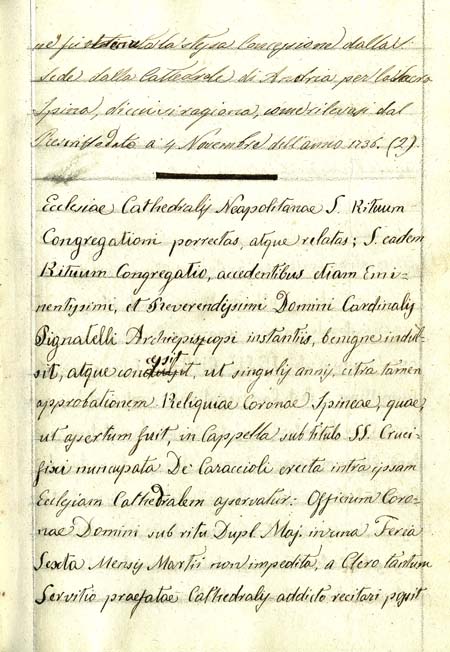 né fu ottenuta la stessa Concessione dalla S.
Sede dalla Cattedrale di Andria per la Sacra
Spina, di cui si ragiona, come rilevasi dal
Rescritto dato a 4 Novembre dell'anno 1736. (2).
Ecclesiae Cathedralis Neapolitanae S. Rituum
Congregationi porrectas, atque relatas; S. eadem
Rituum Congregatio, accedentibus etiam Emi-
nentissimi, et Reverendissimi Domini Cardinalis
Pignatelli Archiepiscopi instantiis, benigne indul-
sit, atque concessit, ut singulis annis, citra tamen
approbationem Reliquiae Coronae Spineae, quae,
ut assertum fuit, in Cappella sub titulo SS. Cruci-
fixi nuncupata De Caraccioli erecta intra ipsam
Ecclesiam Cathedralem asservatur: Officium Coro-
nae Domini sub ritu Dupl. Maj. in una Feria
Sexta Mensis Martii non impedita, a Clero tantum
Servitio praefatae Cathedralis addicto recitari possit